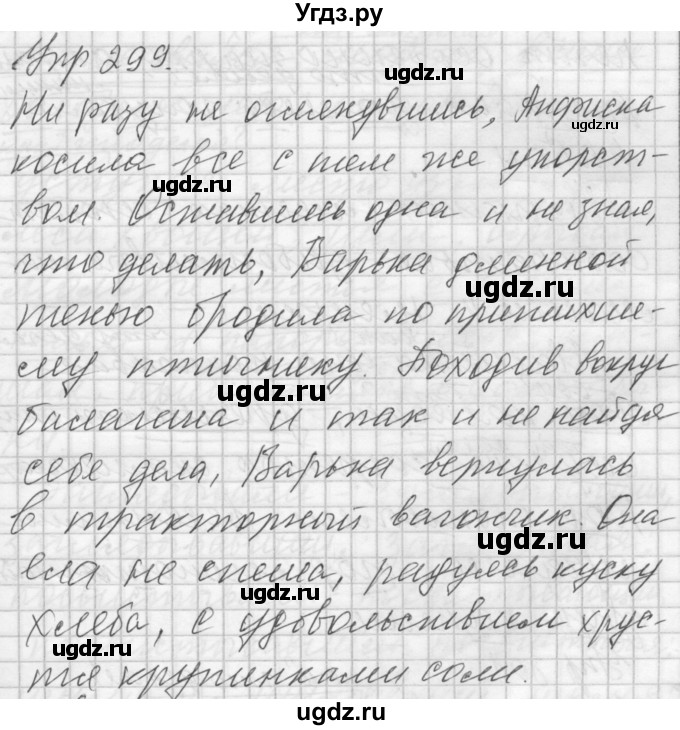 Угдз.ру
Упр 299.
ugdz.ru
Ни разу не оглянувшись, Анфиска
ugdz.ru
косила все с тем же упорст-
ugdz.ru
вом. Оставшись одна и не зная,
что делать, Варька длинной
ugdz.ru
тенью бродила по притихше-
му птичнику. Походив вокруг
ugdz.ru
балагана и так и не найдя
себе дела, Варька вернулась
в тракторный вагончик. Она
ugdz.ru
ела не спеша, радуясь куску
ugdz.ru
хлеба, с удовольствием хрус-
ugdz.ru
тя крупинками соли.
ugdz.ru